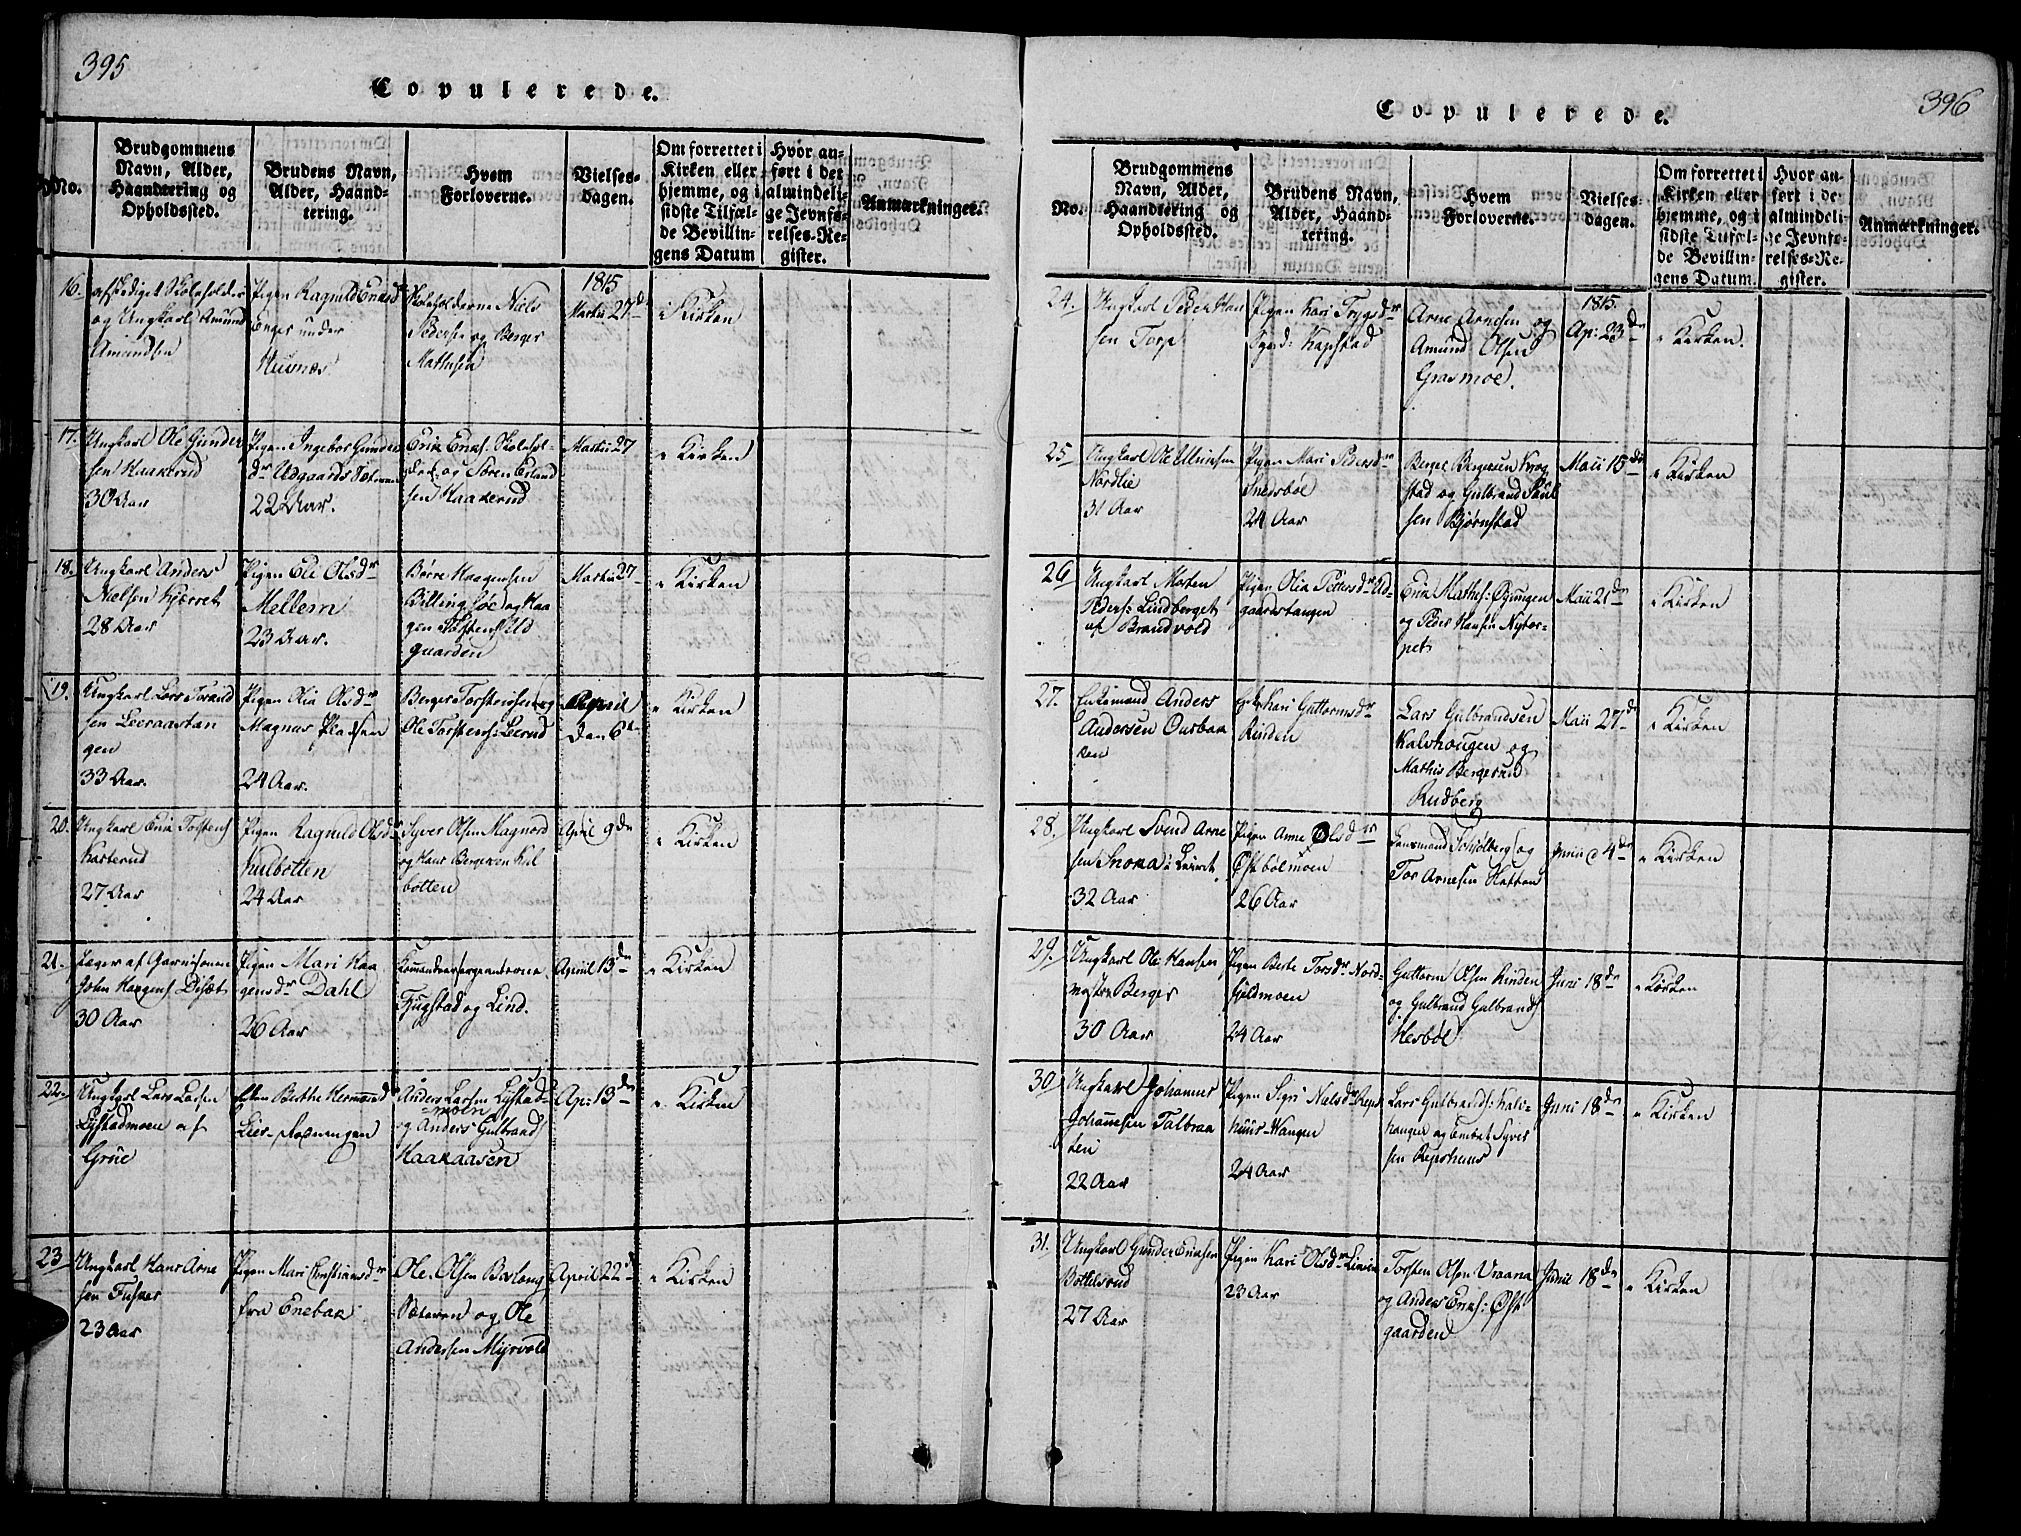 395
Copulerede.
No.
Brudgommens Navn, Alder, Haandtering og Opholdssted.
Brudens Navn, Alder, Haandtering.
Hvem Forloverne.
Vielses-dagen.
Om forrettet i Kirken eller hjemme, og i sidste Tilfælde Bevillingens Datum
Hvor anført i det almindelige Jevnførelses-Register.
Anmærkninger.
16.
afskediget Skoleholder
og Ungkarl Amund
Amundsen
Pigen Ragnild Ericsdr
Enger under
Huusnæs
Skoleholderne Niels
Pedersen og Berger
Mathisen
1815
Martii 27de
i Kirken
17.
Ungkarl Ole Gunder
sen Haakerud
30 Aar
Pigen Ingebor Gunder
dr
22 Aar.
Eric Erics: Skolehol-
der og Søren Erland
sen Haakerud
Martii 27
i Kirken
18.
Ungkarl Anders
Nielsen Kjerret
28 Aar
Pigen Eli Olsdr
Mellem
23 Aar.
Børre Haagensen
Billingsøe og Haa
gen Torstens: Ud
gaarden
Martii 27
i Kirken
19.
Ungkarl Lars
sen Leeraastan
gen
33 Aar.
Pigen Olia Olsdr
Magnor Pladsen
24 Aar.
Berger Torstensen og
Ole Torstens: Leerud
April
den 6te
i Kirken
20.
Ungkarl Eric Torstens
Kasterud
27 Aar
Pigen Ragnild Olsdr
Kulbotten
24 Aar
Syver Olsen Magnord
og Hans Bergersen Kul
botten
April 9de
i Kirken
21.
Jæger af Garnisonen
John Haagens Diset
30 Aar
Pigen Mari Haa
gensdr Dahl
26 Aar
Comandeersergeanterne
Fjugstad og Lind.
April 13de
i Kirken
22.
Ungkarl Lars Larsen
Lystadmoen af
Grue
Enken Berthe Hermansd
Lier-
Anders Larsen Lystad-
moen
og Anders Gulbrands
Haakaasen
Ap: 13de
i Kirken
23
Ungkarl Hans Arne
sen Fusker
23 Aar
Pigen Mari Christiansdr
fra Enebak
Ole Olsen
Sæteren og Ole
Andersen Myrvold
April 22de
i Kirken
396
Copulerede.
No.
Brudgommens Navn, Alder, Haandtering og Opholdssted.
Brudens Navn, Alder, Haandtering.
Hvem Forloverne.
Vielses-dagen.
Om forrettet i Kirken eller hjemme, og i sidste Tilfælde Bevillingens Datum.
Hvor anført i det almindelige Jevnførelses-Register.
Anmærkninger.
24.
Ungkarl Peder Han
sen Torp
Pigen Kari Trygsdr
Kapstad
Arne Arnesen og
Amund Olsen
Grasmoe.
1815.
Ap: 23de
i Kirken.
25
Ungkarl Ole Ellingsen
Nordlie
31 Aar
Pigen Mari Pedersdr
Snedsbøl
24 Aar
Berger Bergersen Krog
stad og Gulbrand Poul
sen Bjørnstad
Maii 15de
i Kirken
26
Ungkarl Morten
Peders: Lindberget
af Brandvold
Pigen Olia Pettersdr Ud-
gaardstangen
Eric Mathis: Øyungen
og Peder Hansen Nytor-
pet
Maii 21de
i Kirken
27.
Enkemand Anders
Andersen Ousbak
ken
Enken Kari Guttormsdr
Rinden
Lars Gulbrandsen
Kalvhougen og
Mathis Bergersen
Rudberg
Maii 27de
i Kirken
28.
Ungkarl Svend Arne
sen Snora i Leiret
32 Aar
Pigen Anne Olsdr
Østbølmoen
26 Aar
Lensmand Schiølberg og
Tor Arnesen Hatten
Junii 4de
i Kirken
29.
Ungkarl Ole Hansen
Mastre Berger
30 Aar
Pigen Berte Torsdr Nord-
fjeldmoen
24 Aar
Guttorm Olsen Rinden
og Gulbrand Gulbrands
Hesbøl
Juni 18de
i Kirken
30.
Ungkarl Johannes
Johannesen Talbraa
ten
22 Aar
Pigen Sigri Nielsdr Reps
huus-Hangen
24 Aar
Lars Gulbrands: Kalv-
hougen og Embret Syver
sen Repshuus
Juni 18de
i Kirken
31.
Ungkarl Gunder Ericsen
Bottelsrud
27 Aar
Pigen Kari Olsdr Linien
23 Aar
Torsten Olsen Vraana
og Anders Erics: Øst
gaarden
Junii 18de
i Kirken